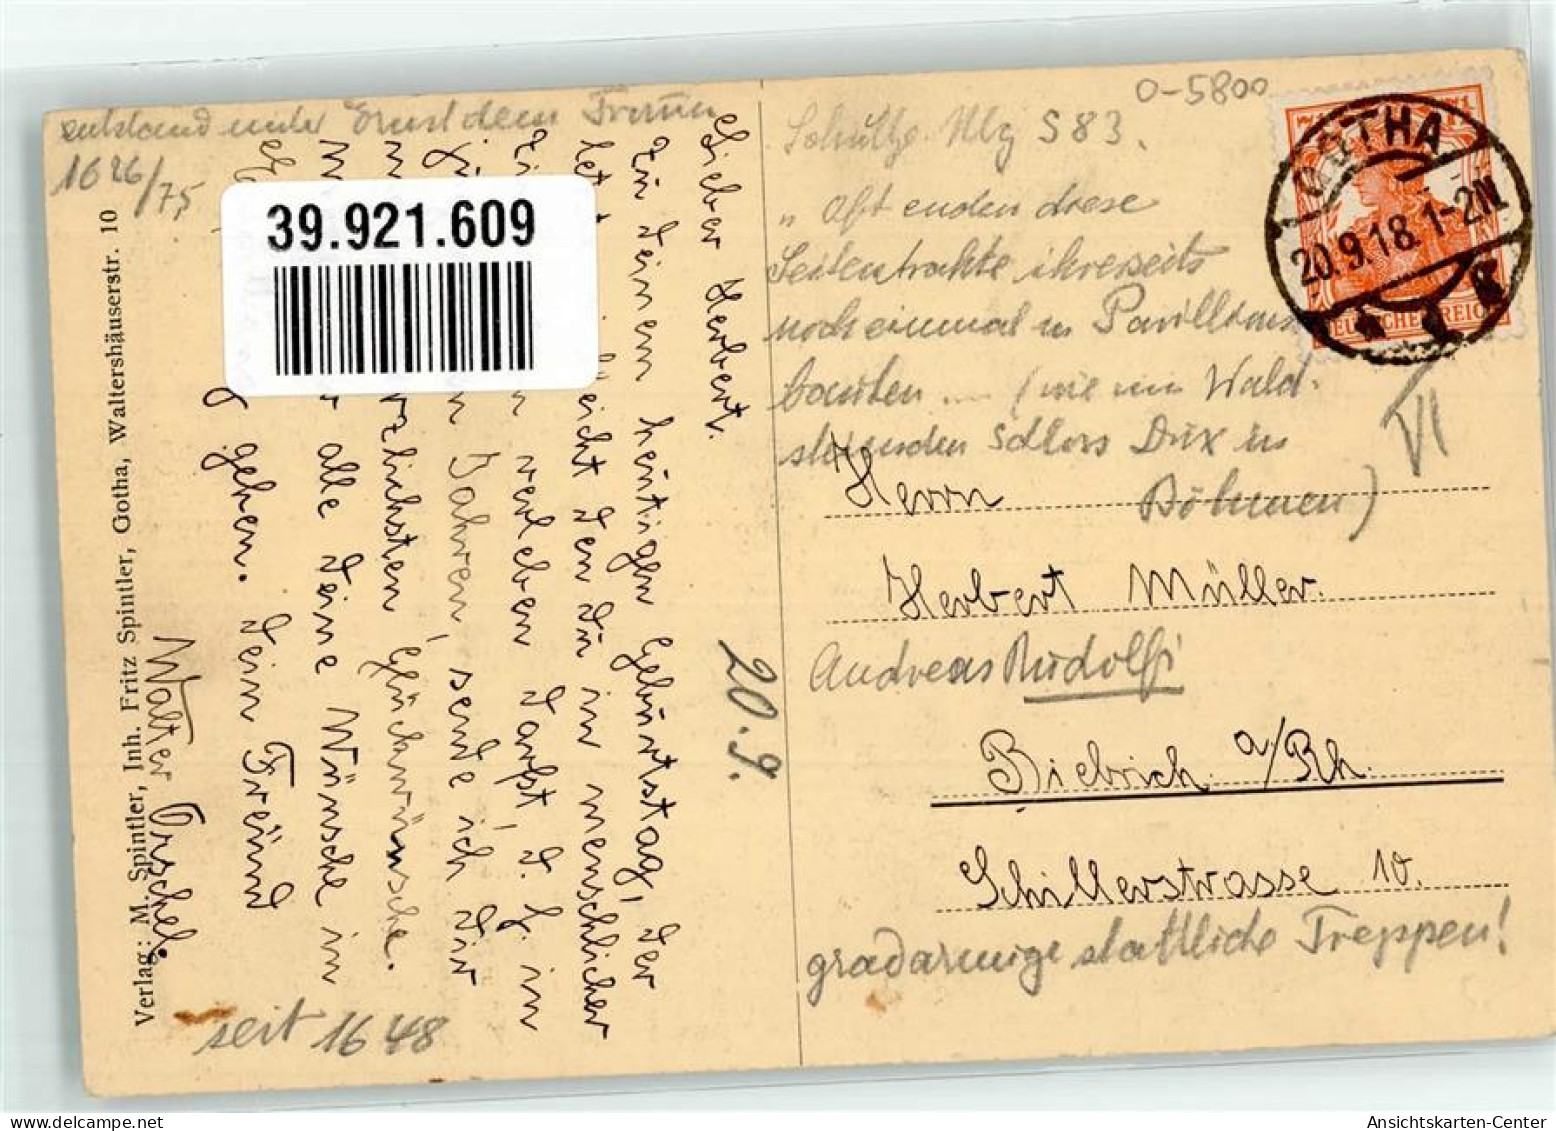 entstand unter Ernst dem Frommen
1626/75
39.921.609
Verlag: M. Spintler, Inh. Fritz Spintler, Gotha, Waltershäuserstr. 10
Lieber Herbert.
Zu deinem heutigen Geburtstag, der
leicht den du in menschlicher
verleben darfst, d. h. im
Jahren, sende ich dir
herzlichsten Glückwünsche.
alle deine Wünsche in
gehen. Dein Freund
Walter Orschel.
20.9.
seit 1648
0-5800
Schultze Nbg S 83.
„Oft enden diese
Seitentrakte ihrerseits
noch einmal in Pavillons
bauten .... (wie im Wald-
steinschen Schloss Dux in
Böhmen)
VI
GOTHA
20.9.18.1-2N
DEUTSCHES REICH
Herrn
Herbert Müller.
Andreas Rudolfi
Biebrich a/Rh.
Schillerstrasse 10.
gradarmige stattliche Treppen!
Ansichtskarten-Center